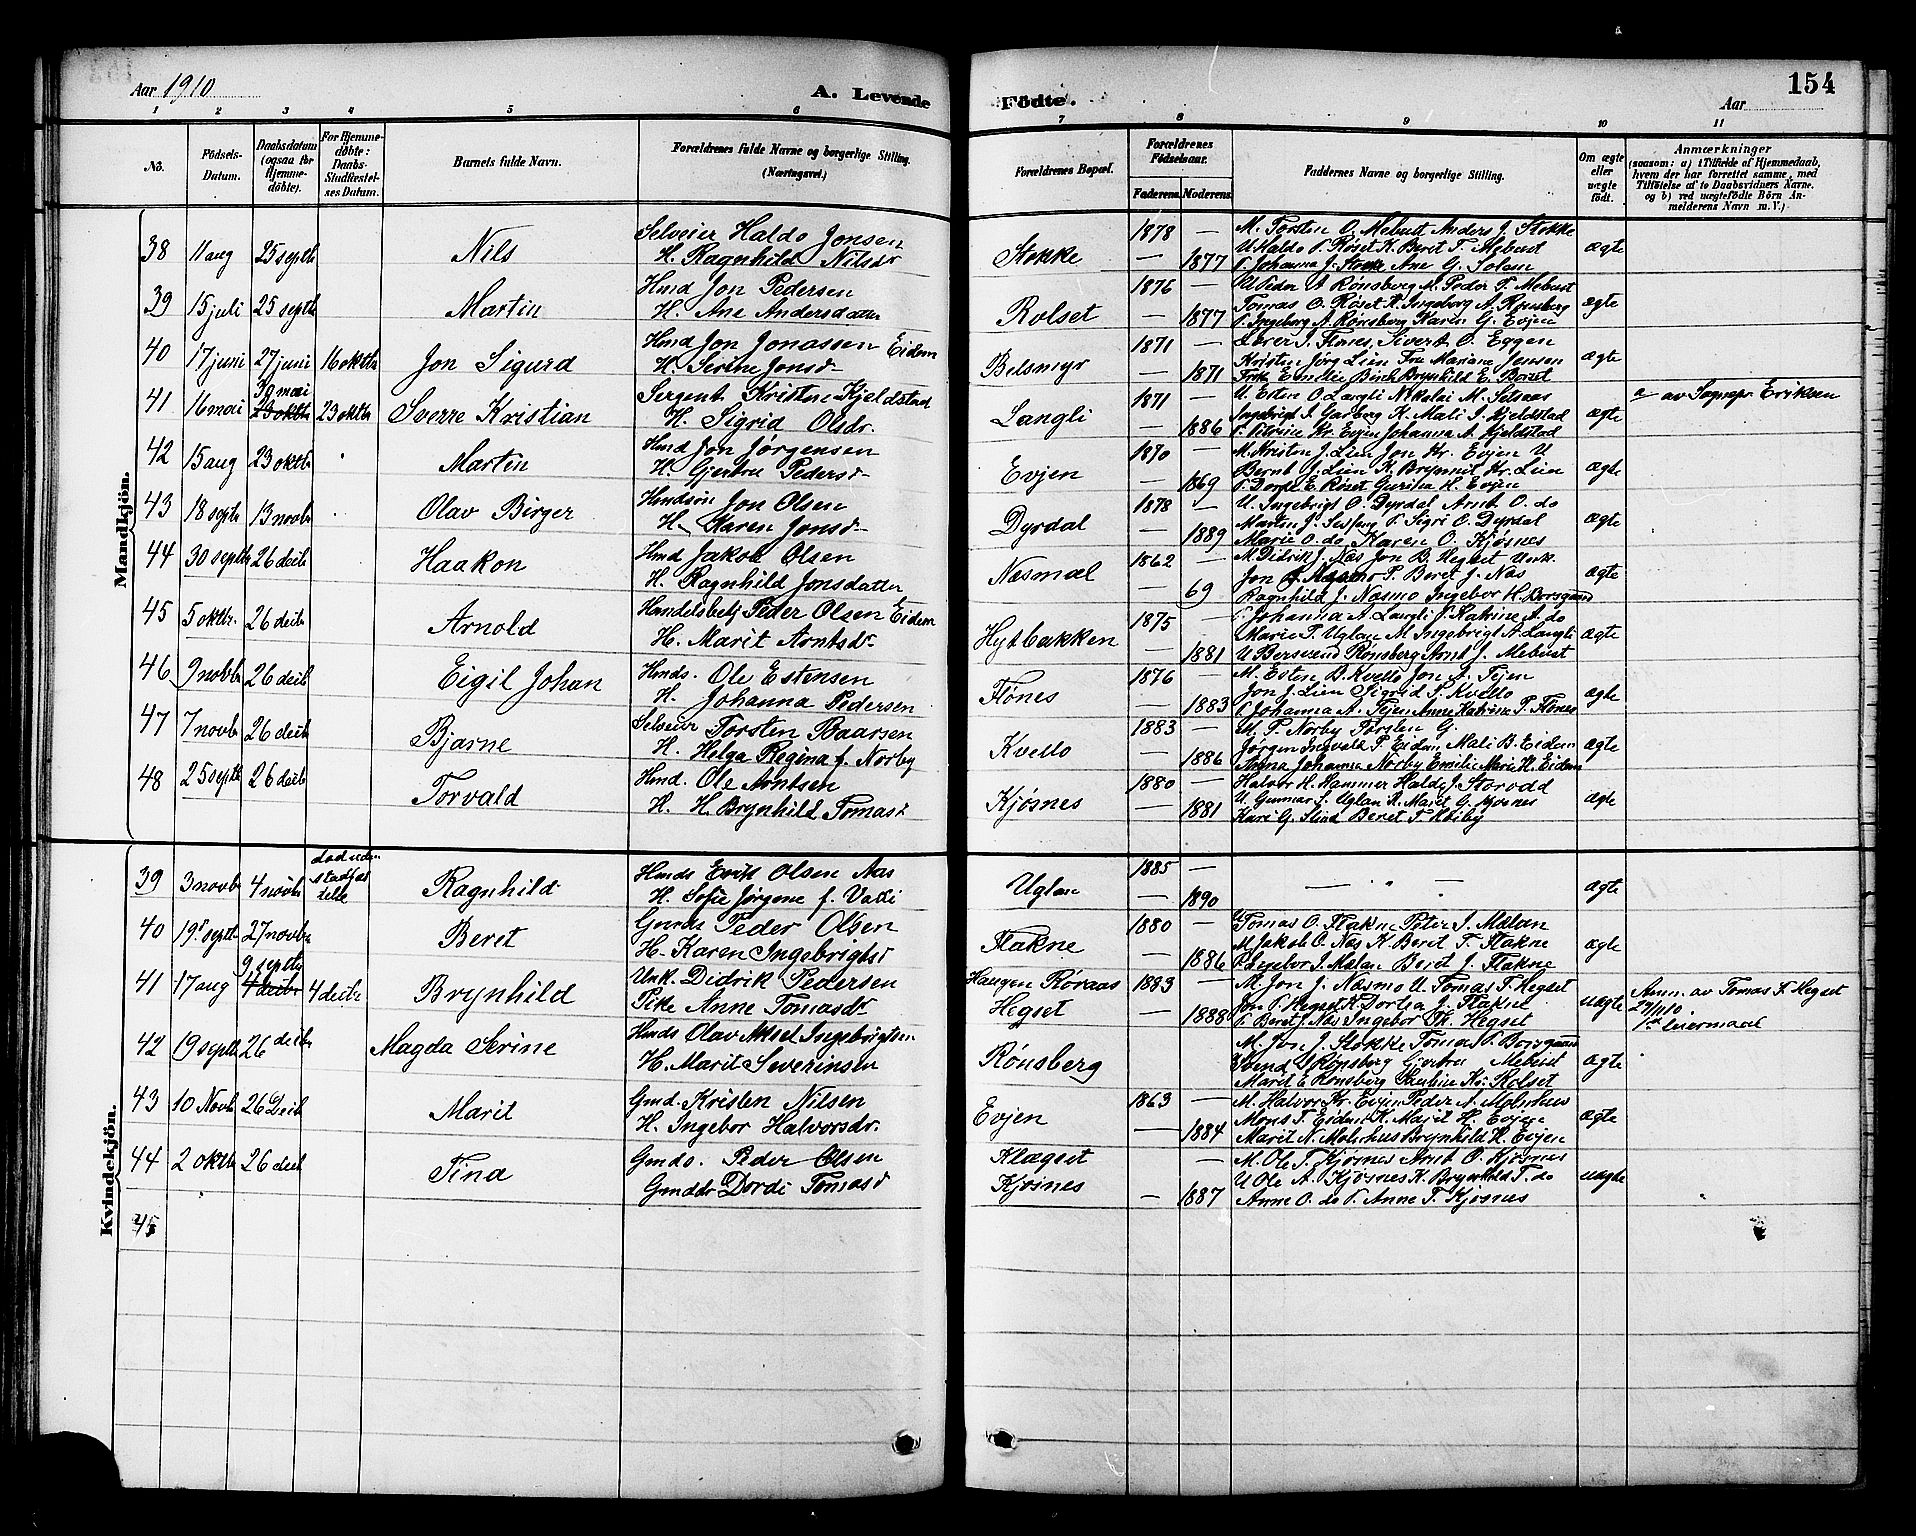 Aar 1910
A. Levende
Födte.
Aar
154
1 2 3 4 5 6 7 8 9 10 11
No.
Födsels-Datum.
Daabsdatum (ogsaa for Hjemmedöbte).
For Hjemmedöbte: Daabs-Stadfæstelses Datum.
Barnets fulde Navn.
Forældrenes fulde Navne og borgerlige Stilling. (Næringsvei.)
Forældrenes Bopæl.
Forældrenes Födselsaar.
Faderens. Moderens.
Faddernes Navne og borgerlige Stilling.
Om ægte eller uægte födt.
Anmærkninger
(saasom: a) i Tilfælde af Hjemmedaab, hvem der har forrettet samme, med Tilföielse af to Daabsvidners Navne, og b) ved uægtefödte Börn Anmelderens Navn m. V.)
Mandkjön.
38 11 aug 25 septb Nils
Selveier Haldo Jonsen
H. Ragnhild Nilsdr
Stokke 1878 — 1877
M. Torsten O. Mebust Anders J. Stokke
U. Haldo T. Røset K. Beret T. Mebust
P. Johanna J. Stokke Ane G. Solem
ægte
39 15 juli 25 septb Martin
Hmd Jon Pedersen
H. Ane Andersdatter
Rolset 1876 — 1877
U. Peder A. Rønsberg M. Peder T. Mebust
Tomas O. Røset K. Ingeborg A. Rønsberg
P. Ingeborg A. Rønsberg Karen G. Evjen
ægte
40 17 juni 27 juni 16 oktbr Jon Sigurd
Hmd Jon Jonassen Eidem
H. Serine Jonsdr
Belsmyr 1871 — 1871
Lærer J. Flønes, Sivert O. Eggen
Kristen Jørg. Lien Fru Mariane Jensen
Frk. Emelie Birch Brynhild E. Borset
ægte
41 16 mai 30 mai 23 oktbr 23 oktbr Sverre Kristian
Sergent Kristen Kjeldstad
H. Sigrid Olsdr.
Langli 1871 — 1886
U. Esten O. Langli Nikolai M. Selsaas
Ingebrigt J. Garberg K. Mali J. Kjeldstad
P. Petrine Kr. Evjen Johanna A. Kjeldstad
ægte
a av Sognepr. Eriksen
42 15 aug 23 oktb Martin
Hmd Jon Jørgensen
H. Gjertru Pedersdr
Evjen 1870 — 1869
M. Kristen J. Lien Jon Kr. Evjen U
Bernt J. Lien K. Brynnil Kr. Lien
P. Dordi E. Røset Gurina H. Evjen
ægte
43 18 septb 13 novbr Olav Birger
Hmdsøn Jon Olsen
H. Karen Jonsdr
Dyrdal 1878 — 1889
U. Ingebrigt O. Dyrdal Arnt O. do
Martin J. Sesseng P. Sigri O. Dyrdal
Marie O. do Karen O. Kjøsnes
ægte
44 30 septb 26 decb Haakon
Hmd Jakob Olsen
H. Ragnhild Jonsdatter
Næsmæl 1862 — 69
M. Didrik J. Næs Jon B. Hegset Unk.
Jon J. Næsmo P. Beret J. Næs
Ragnhild J. Næsmo Ingebor H. Borsgaard
ægte
45 5 oktbr. 26 decb Arnold
Handelsbetj Peder Olsen Eidem
H. Marit Arntsdr
Hytbakken 1875 — 1881
P. Johanna A. Langli P. Katrine A. do
Marie P. Uglan M. Ingebrigt A. Langli
U Bersvend Rønsberg Arnt J. Mebust
ægte
46 9 novbr 26 decb Eigil Johan
Hmds. Ole Estensen
H. Johanna Pedersen
Flønes 1876 — 1883
M. Esten B. Kvello Jon A. Fejen
Jon J. Lien Sigrid P. Kvello
P. Johanna A. Fejen Anne Katrine P. Flønes
ægte
47 7 novbr 26 decb Bjarne
Selveier Torsten Baarsen
H. Helga Regina f. Norby
Kvello 1883 — 1886
M. P. Norby Torsten G.
Jørgen Ingvald P. Eidem Mali B. Eidem
Anna Johanna Norby Emelie Marie H. Eidem
ægte
48 25 septb 26 decb Torvald
Hmd. Ole Arntsen
H. H. Brynhild Tomasdr
Kjøsnes 1880 — 1881
Halvor H. Hammer Haldo J. Storvold
U. Gunnar S. Uglan K. Marit G. Kjøsnes
Kari G. Slind Beret T. Kosby
ægte
Kvindekjön.
39 3 novbr 4 novbr død uden stadfæstelse Ragnhild
Hmds Erik Olsen Næs
H. Sofie Jørgine f. Valli
Uglan 1885 — 1890
— " —
ægte
40 19 septb 27 novbr Beret
Gmds Peder Olsen
H. Karen Ingebrigtsdr
Flakne 1880 — 1886
U. Tomas O. Flakne Peter J. Mælan
M Jakob O. Næs K. Beret T. Flakne
P. Ingebor J. Mælan Beret J. Flakne
ægte
41 17 aug 9 septbr 4 decbr 4 decbr Brynhild
Unk. Didrik Pedersen
Pike Anne Tomasdr
Haugen Røraas
Hegset 1883 — 1888
M. Jon J. Næsmo U. Tomas T. Hegset
Jon P. Hegset K. Dortea J. Flakne
P. Beret J. Næs Ingebor Th. Hegset
uægte
Anm. av Tomas T. Hegset
27/11 10.
1ste leiermaal
42 19 septb 26 decbr Magda Serine
Hmds Olav Aksel Ingebrigtsen
H. Marit Severinsen
Rønsberg
M. Jon J. Stokke Tomas P. Borsgaard
Svend J. Rønsberg Gjertru Mebust
Marit E. Rønsberg Pauline Kr. Rolset
ægte
43 10 Novb 26 Decb Marit
Gmd. Kristen Nilsen
H. Ingebor Halvorsdr.
Evjen 1863 — 1884
M. Halvor Kr. Evjen Peder A. Molihus
Mons T. Eidem K. Marit H. Evjen
Marit N. Molihus Brynhild H. Evjen
ægte
44 2 oktbr 26 decb Tina
Gmds. Peder Olsen
Gmddr Dordi Tomasdr
Klægset
Kjøsnes — 1887
M. Ole T. Kjøsnes Arnt O. Kjøsnes
U Ole A. Kjøsnes K. Brynhild T. do
Anne O. do P. Anne T. Kjøsnes
uægte
45